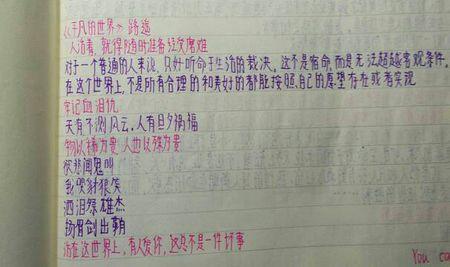 《平凡的世界》 路遥
人活着,就得随时准备经受磨难
对于一个普通的人来说,只好听命于生活的裁决,这不是宿命,而是无法超越客观条件。
在这个世界上,不是所有合理的和美好的都能按照自己的愿望存在或者实现
牢记血泪仇
天有不测风云,人有旦夕祸福
物以稀为贵 人也以稀为贵
欲悲闻鬼叫
我哭豺狼笑
洒泪祭雄杰
扬眉剑出鞘
活在这世界上,有人爱你,这总不是一件坏事
You ca